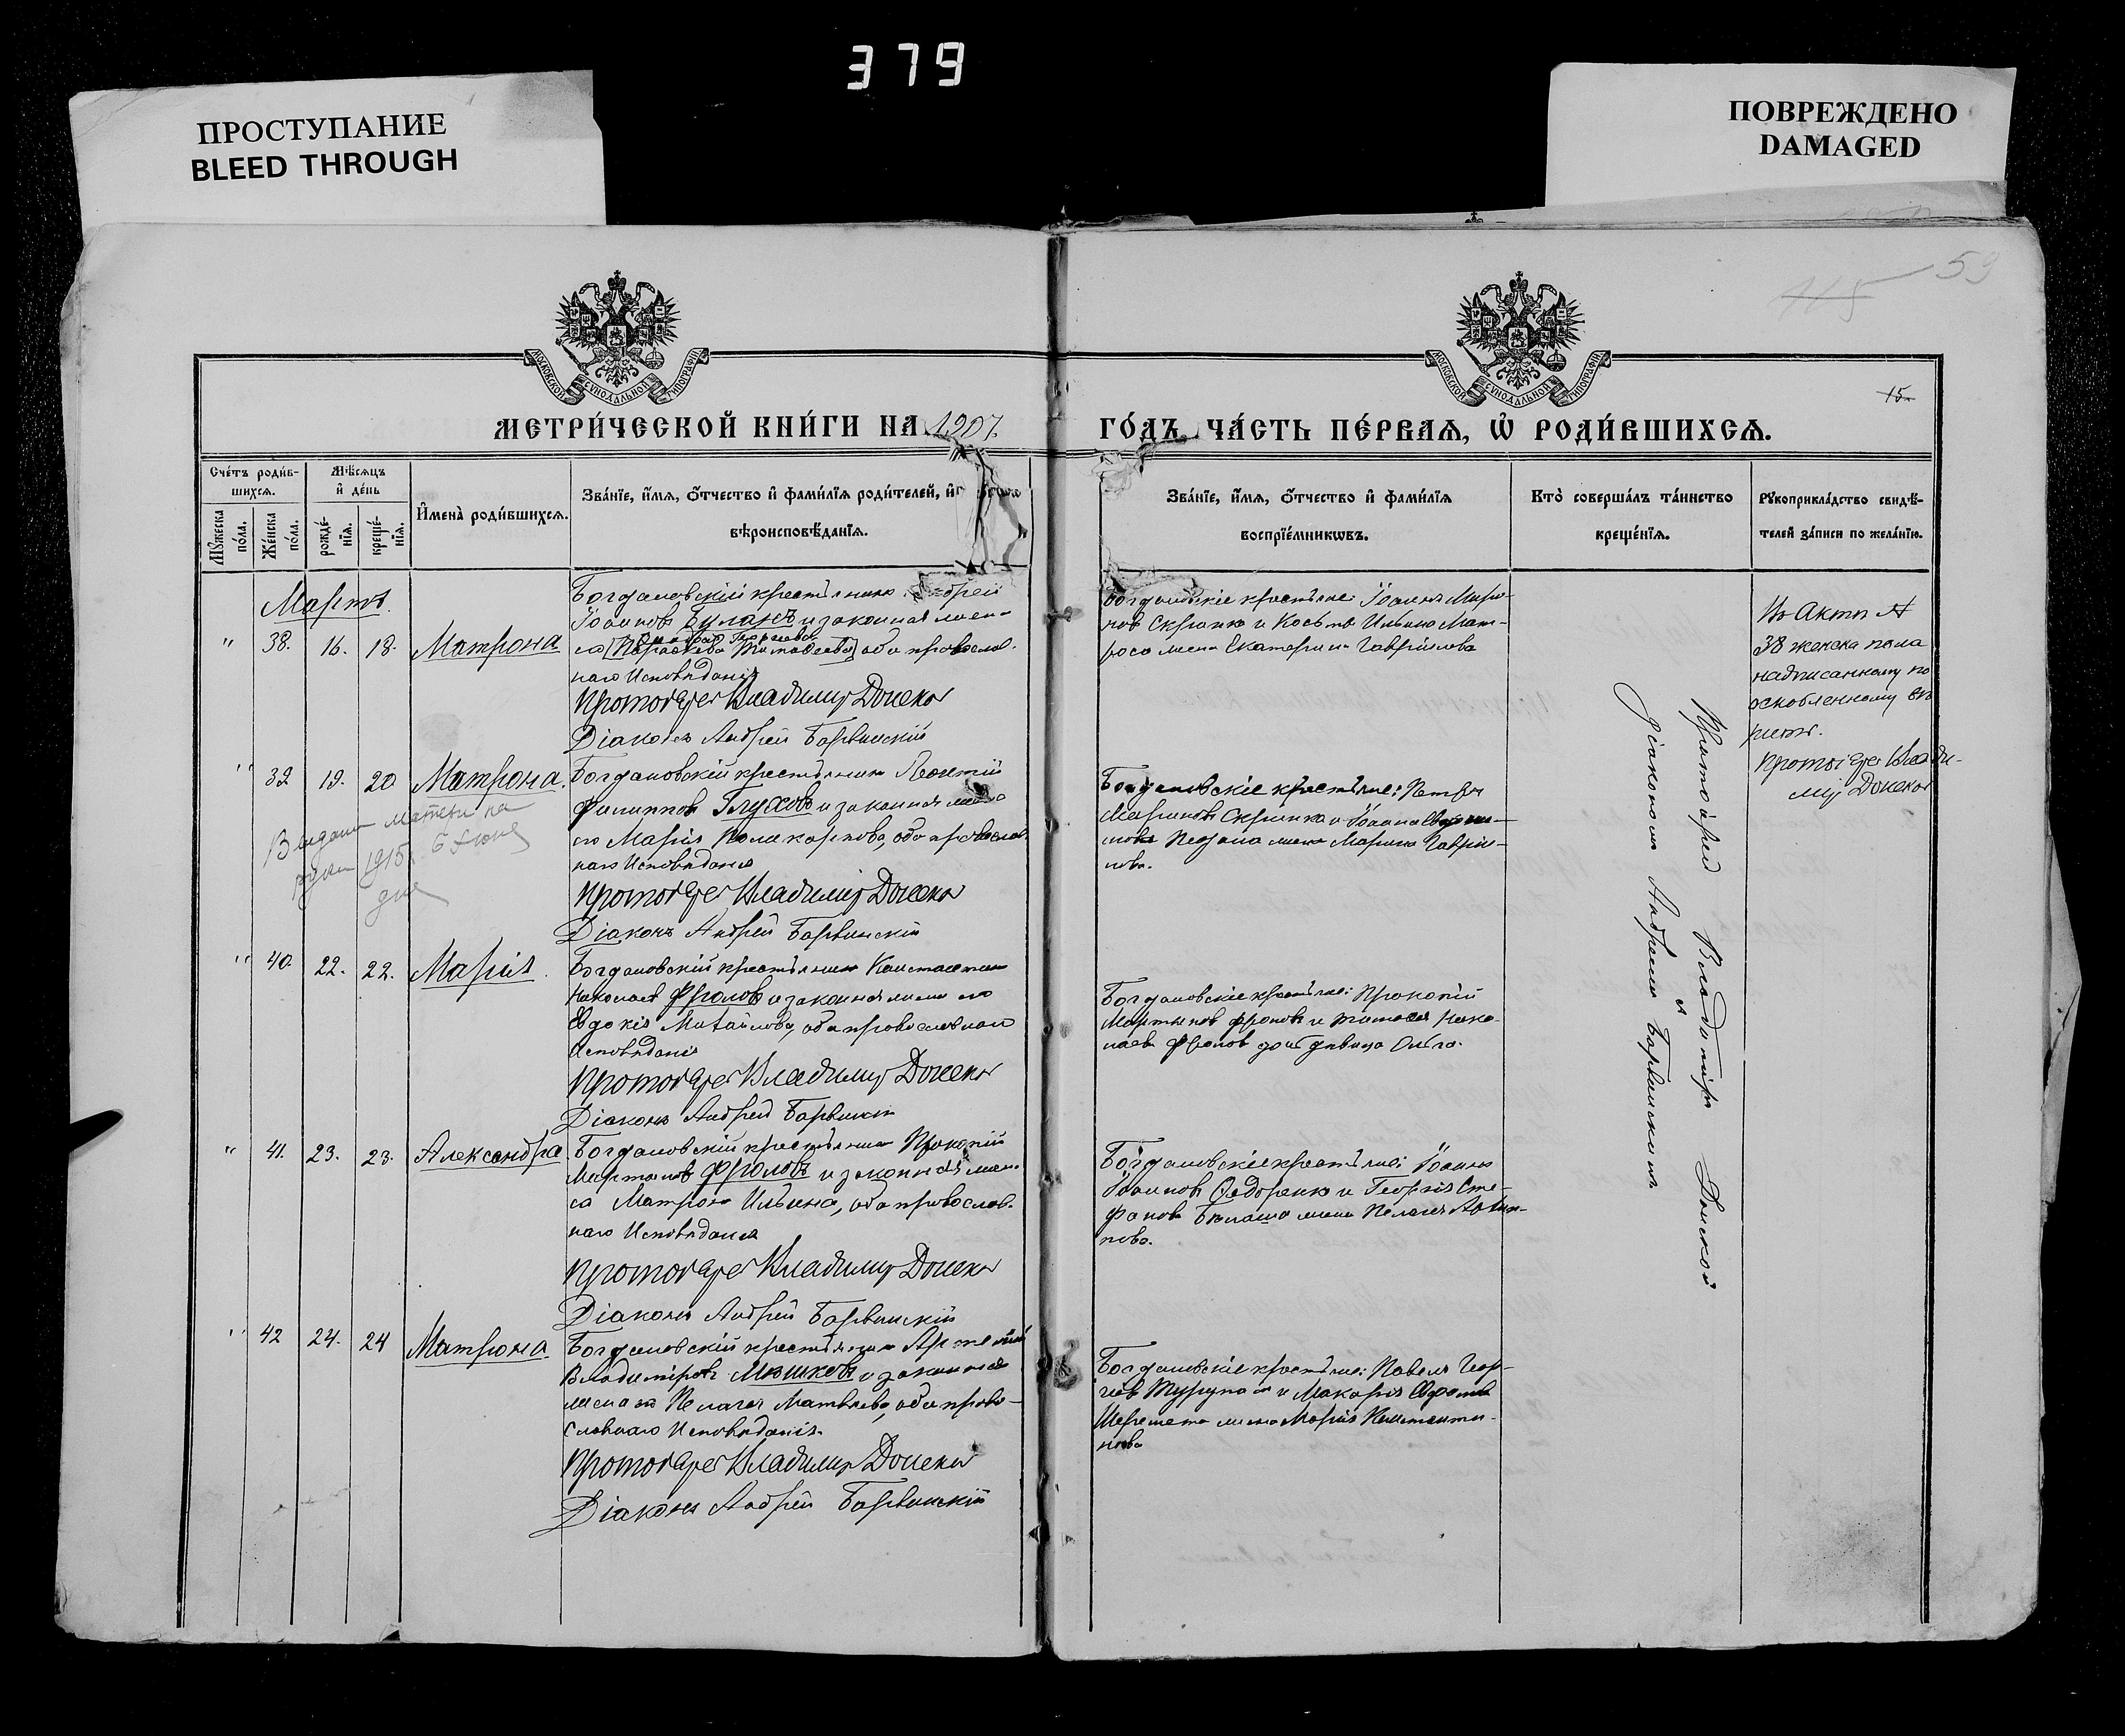 379
ПРОСТУПАНИЕ
BLEED THROUGH
ПОВРЕЖДЕНО
DAMAGED
59
115
15
МОСКОВСКОЙ СѴНОДАЛЬНОЙ ТИПОГРАФІИ
МОСКОВСКОЙ СѴНОДАЛЬНОЙ ТИПОГРАФІИ
МЕТРИ́ЧЕСКОЙ КНИ́ГИ НА 1907
ГО́ДЪ, ЧА́СТЬ ПЕ́РВАЯ, Ѡ҆ РОДИ́ВШИХСЯ.
Сче́тъ роди́в-
шихся.
Мѣ́сяцъ
и҆ де́нь
Мꙋ́жеска
по́ла.
Же́нска
по́ла.
рожде́-
нїя.
креще́-
нїя.
И҆мена̀ роди́вшихся.
Зва́нїе, и҆́мя, о҆́тчество и҆ фами́лїя роди́телей, и҆
вѣроисповѣ́данїя.
Зва́нїе, и҆́мя, о҆́тчество и҆ фами́лїя
воспрїе́мникѡвъ.
Кто̀ соверша́лъ та́инство
креще́нїя.
Рꙋкоприкла́дство свидѣ́-
телей за́писи по жела́нїю.
Мартъ.
" 38. 16. 18. Матрона
Богдановскій крестьянинъ Андрей
Іоанновъ Буланъ и законная жен-
а [Параскева Тимофеева] оба православ-
наго Исповѣданія
Протоіерей Владимиръ Донской
Діаконъ Андрей Барвинскій
Богдановскіе крестьяне: Іоаннъ Миро-
новъ Скрипка и Косьмы Ильина Мат-
роса жена Екатерина Гаврiилова
Въ Актѣ №
38 женска пола
надписанному по
оскобленному вѣ-
рить.
Протоіерей Влади-
миръ Донской
" 39 19. 20 Матрона.
Богдановскій крестьянинъ Леонтій
Филипповъ Глуховъ и законная жена
его Марія Поликарпова, оба православ-
наго Исповѣданія
Протоіерей Владиміръ Донской
Діаконъ Андрей Барвинскій
Выдан матери на
руки 1915 6 Июня
дня
Богдановскіе крестьяне: Петръ
Мироновъ Скрипка и Іоанна
жена Марина Гаврiи-
лова.
" 40. 22. 22. Марія.
Богдановскій крестьянинъ Константинъ
Николаевъ Фроловъ и законная жена его
Евдокія Михайлова, оба православнаго
Исповѣданія
Протоіерей Владимиръ Донской
Діаконъ Андрей Барвинскій
Богдановскіе крестьяне: Прокопій
Мартыновъ Фроловъ и Тимофея Нико-
лаева Фролова дочь дѣвица Ольга.
" 41. 23. 23. Александра.
Богдановскій крестьянинъ Прокопій
Мартыновъ Фроловъ и законная жен-
а Матрона Ильина, оба православ-
наго Исповѣданія
Протоіерей Владимиръ Донской
Діаконъ Андрей Барвинскій
Богдановскіе крестьяне: Іоаннъ
Іоанновъ Федоренко и Георгія Сте-
фанова жена Пелагея
пова.
" 42 24. 24 Матрона
Богдановскій крестьянинъ Артемій
Владиміровъ Мошковъ и законная
жена его Пелагея Матвѣева, оба право-
славнаго Исповѣданія.
Протоіерей Владимиръ Донской
Діаконъ Андрей Барвинскій
Богдановскіе крестьяне: Павелъ Геор-
гіевъ и Макарія
Шеремета жена Марія Константи-
нова
Протоіерей Владиміръ Донской
и
діакономъ Андреемъ Барвинскимъ